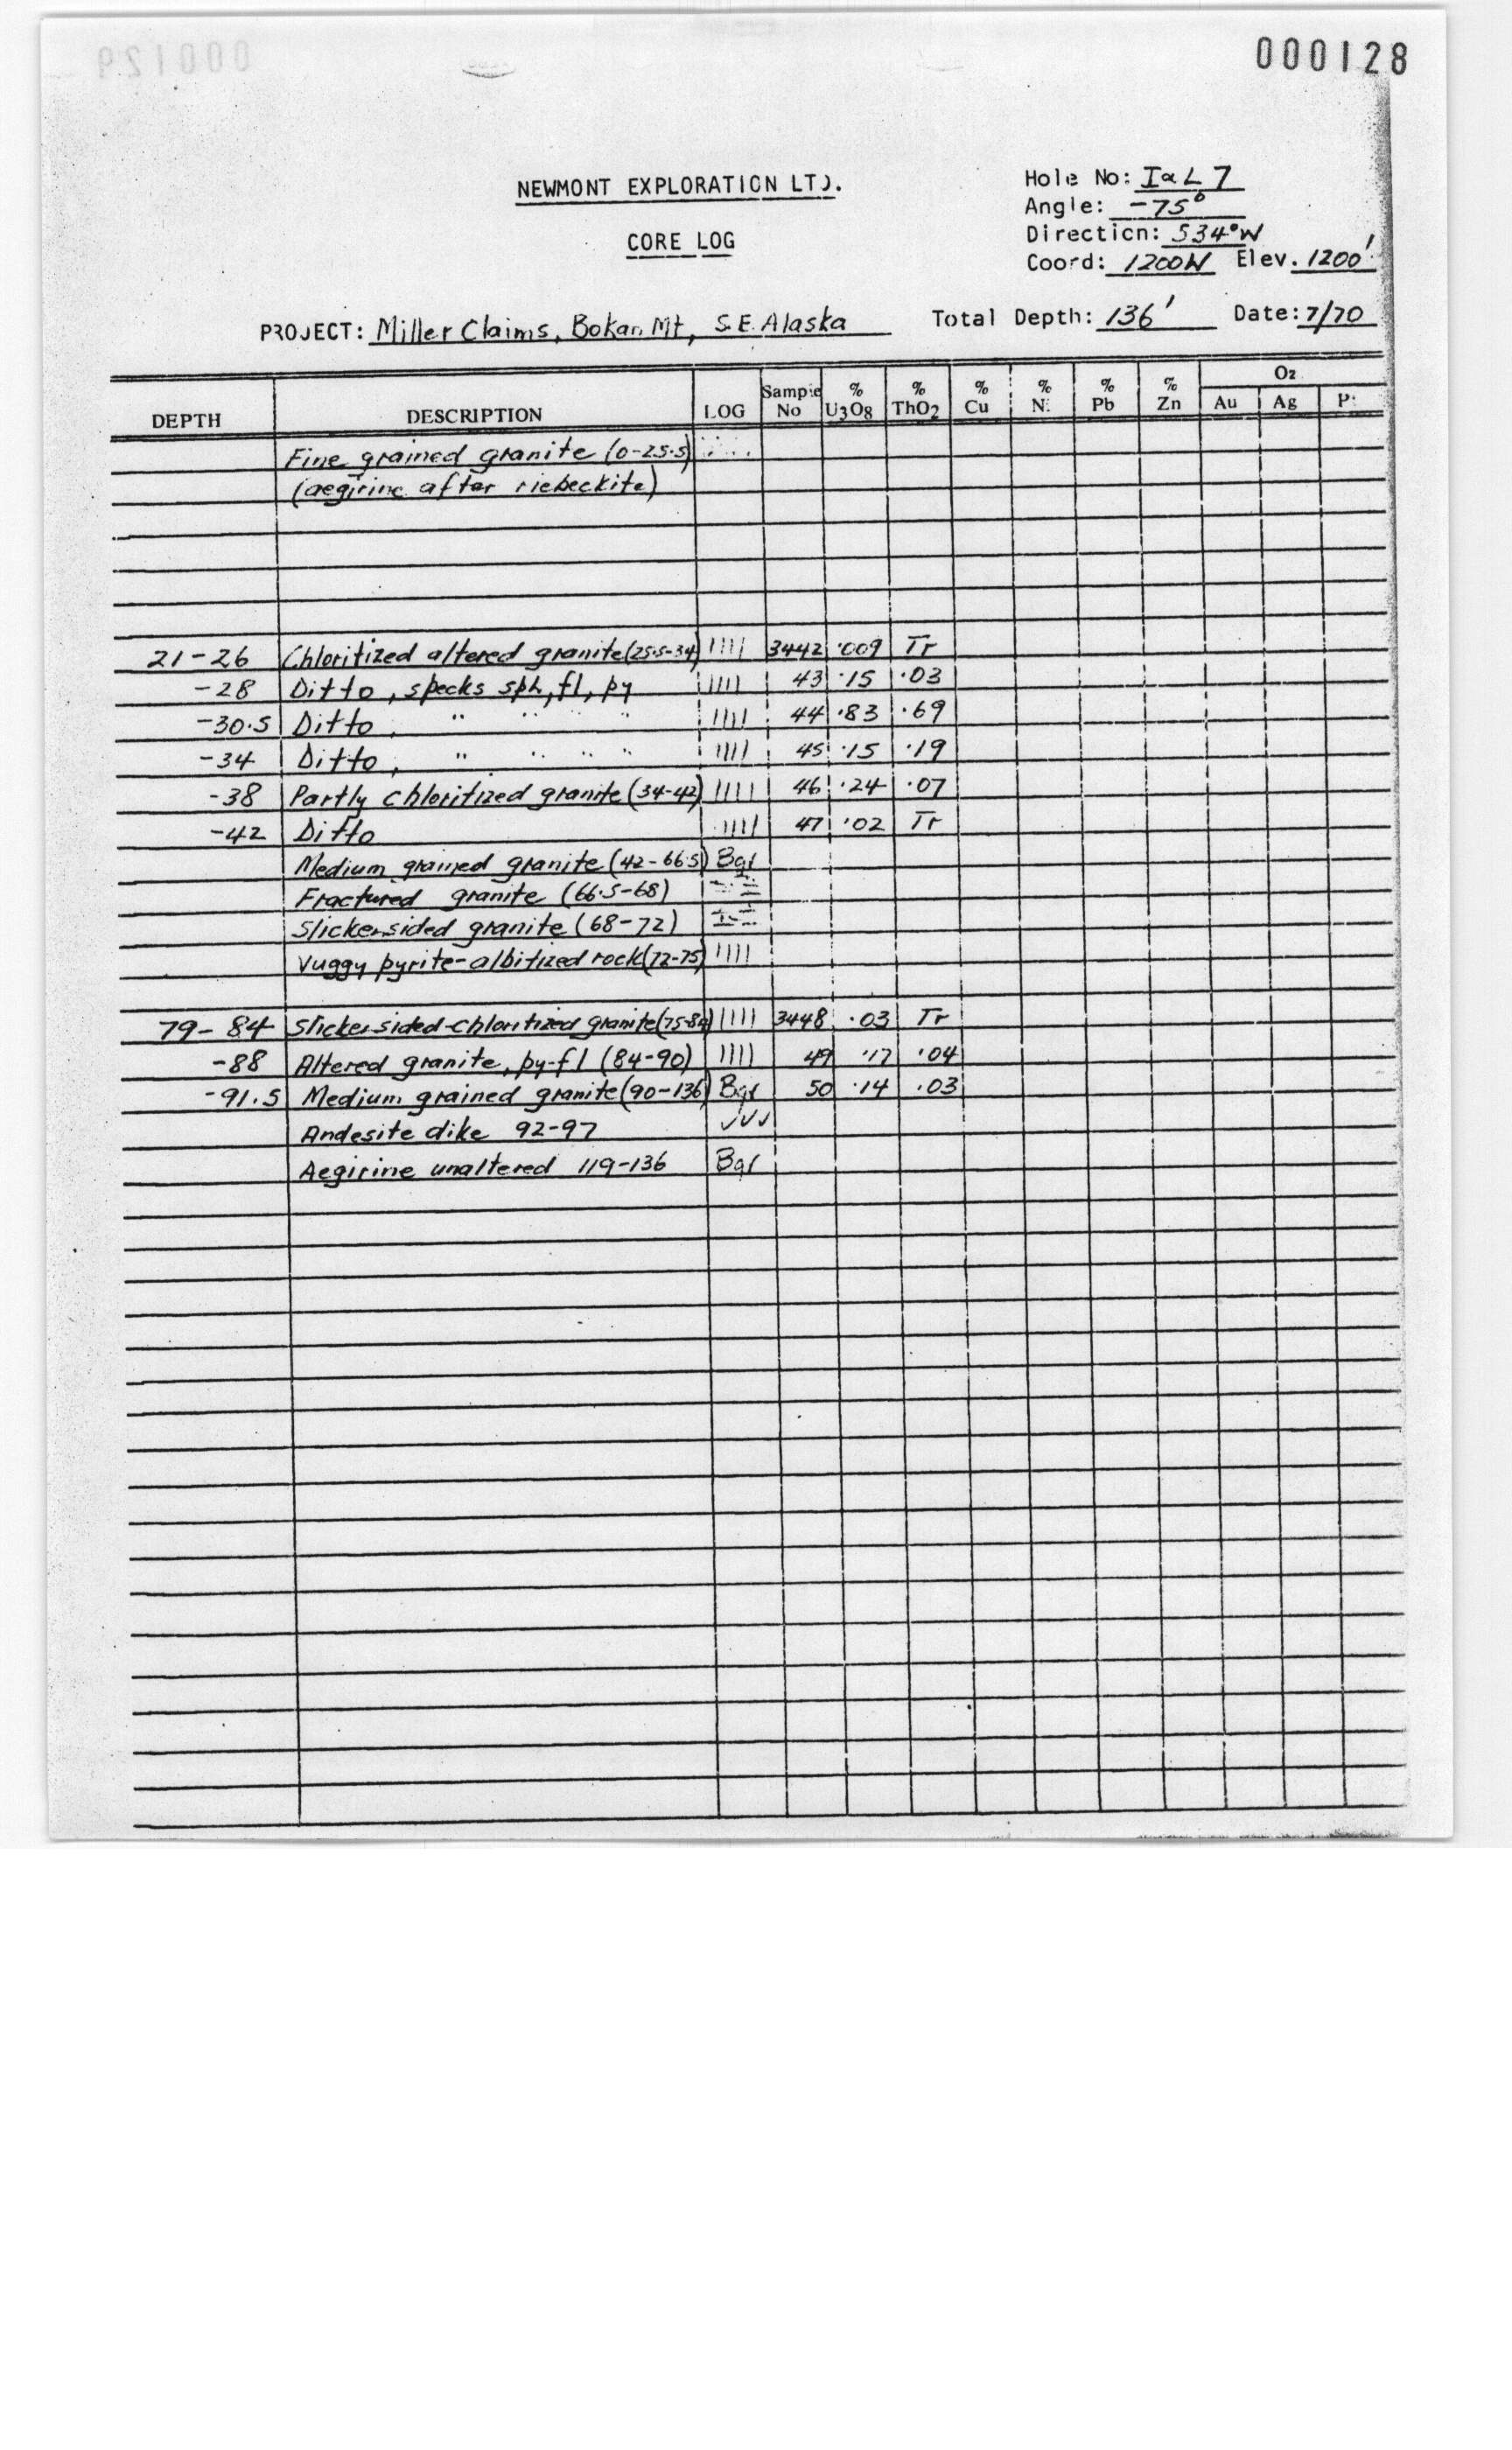 000128
000129
NEWMONT EXPLORATION LTD.
CORE LOG
Hole No: I∝L 7
Angle: -75°
Direction: S34°W
Coord: 1200W Elev. 1200'
PROJECT: Miller Claims, Bokan Mt, S.E. Alaska Total Depth: 136' Date: 7/70
DEPTH DESCRIPTION LOG Sample No % U3O8 % ThO2 % Cu % Ni % Pb % Zn Oz Au Ag Pt
Fine grained granite (0-25.5)
(aegirine after riebeckite)
21-26 Chloritized altered granite (25.5-34) |||| 3442 .009 Tr
-28 Ditto, specks sph, fl, py |||| 43 .15 .03
-30.5 Ditto, " " " " |||| 44 .83 .69
-34 Ditto, " " " " |||| 45 .15 .19
-38 Partly chloritized granite (34-42) |||| 46 .24 .07
-42 Ditto |||| 47 .02 Tr
Medium grained granite (42-66.5) Bgr
Fractured granite (66.5-68)
Slickensided granite (68-72)
Vuggy pyrite-albitized rock (72-75) ||||
79-84 Slickensided-chloritized granite (75-84) |||| 3448 .03 Tr
-88 Altered granite, py-fl (84-90) |||| 49 .17 .04
-91.5 Medium grained granite (90-136) Bgr 50 .14 .03
Andesite dike 92-97 ✓✓✓
Aegirine unaltered 119-136 Bgr